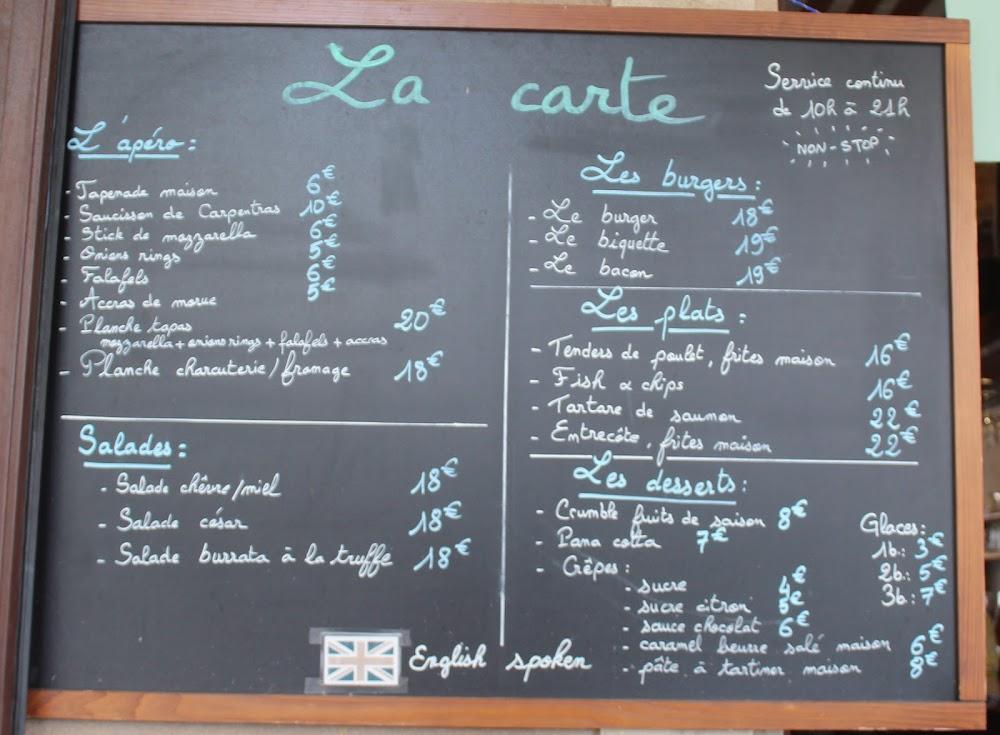 La carte
Service continu
de 10h à 21h
NON-STOP
L'apéro :
- Tapenade maison 6€
- Saucisson de Carpentras 10€
- Stick de mozzarella 6€
- Onions rings 5€
- Falafels 6€
- Accras de morue 5€
- Planche tapas 20€
mozzarella + onions rings + falafels + accras
- Planche charcuterie/fromage 18€
Salades :
- Salade chèvre/miel 18€
- Salade césar 18€
- Salade burrata à la truffe 18€
Les burgers :
- Le burger 18€
- Le biquette 19€
- Le bacon 19€
Les plats :
- Tenders de poulet, frites maison 16€
- Fish & chips 16€
- Tartare de saumon 22€
- Entrecôte, frites maison 22€
Les desserts :
- Crumble fruits de saison 8€
- Pana cotta 7€
- Crêpes :
- sucre 4€
- sucre citron 5€
- sauce chocolat 6€
- caramel beurre salé maison 6€
- pâte à tartiner maison 8€
Glaces :
1b.: 3€
2b.: 5€
3b.: 7€
English spoken